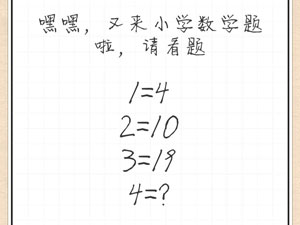 嘿嘿，又来小学数学题
啦，请看题
1=4
2=10
3=19
4=?